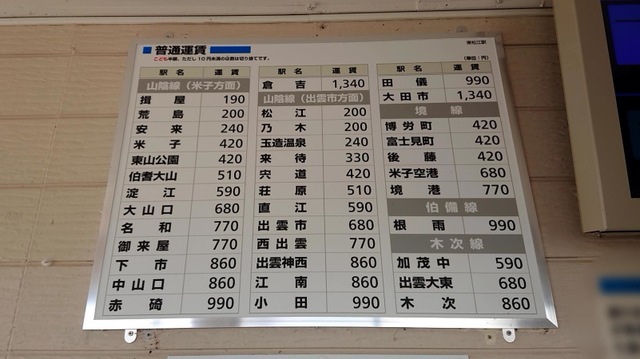 普通運賃
東松江駅
こども半額、ただし10円未満のは数は切り捨てです。
(単位:円)
駅名 運賃
山陰線(米子方面)
揖屋 190
荒島 200
安来 240
米子 420
東山公園 420
伯耆大山 510
淀江 590
大山口 680
名和 770
御来屋 770
下市 860
中山口 860
赤碕 990
駅名 運賃
倉吉 1,340
山陰線(出雲市方面)
松江 200
乃木 200
玉造温泉 240
来待 330
宍道 420
荘原 510
直江 590
出雲市 680
西出雲 770
出雲神西 860
江南 860
小田 990
駅名 運賃
田儀 990
大田市 1,340
境線
博労町 420
富士見町 420
後藤 420
米子空港 680
境港 770
伯備線
根雨 990
木次線
加茂中 590
出雲大東 680
木次 860